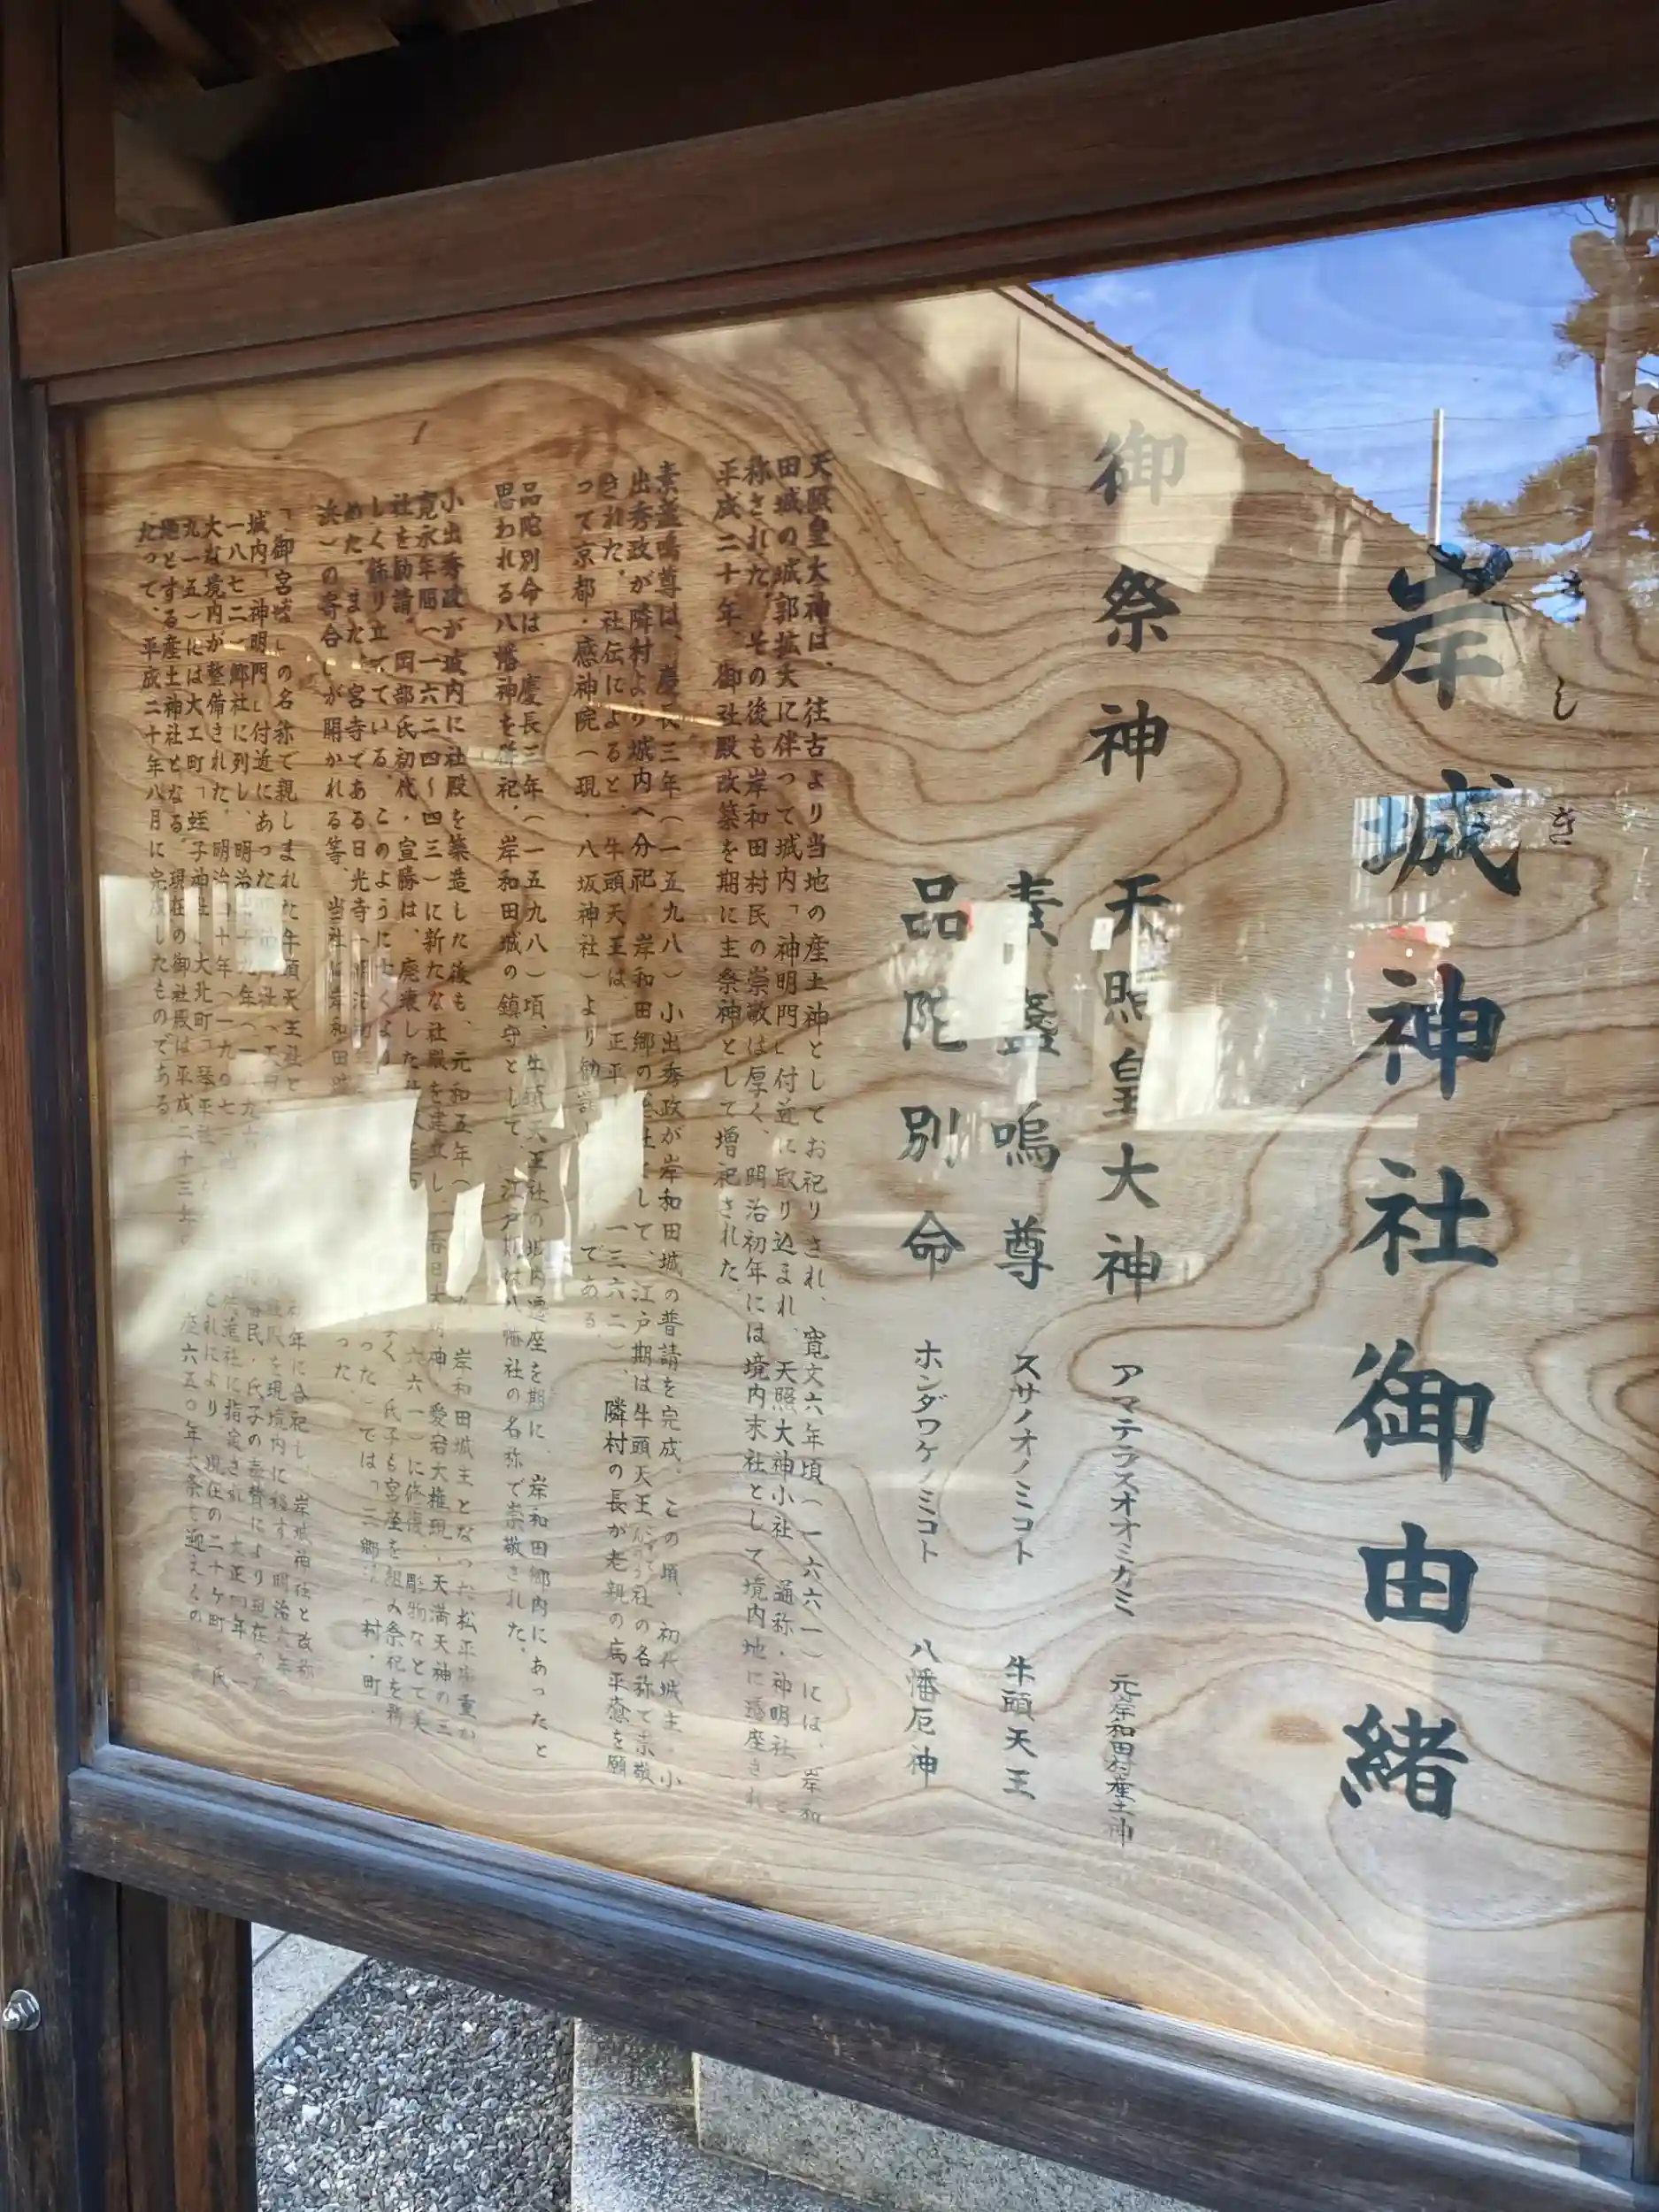 きしき
岸城神社御由緒
御祭神
天照皇大神 アマテラスオオミカミ 元岸和田村産土神
素盞嗚尊 スサノオノミコト 牛頭天王
品陀別命 ホンダワケノミコト 八幡厄神
天照皇大神は、往古より当地の産土神としてお祀りされ、寛文六年頃(一六六一)には、岸和
田城の城郭拡大に伴って城内「神明門」付近に取り込まれ、天照大神小社(通称・神明社)と
称された。その後も岸和田村民の崇敬は厚く、明治初年には境内末社として境内地に遷座され
平成二十年、御社殿改築を期に主祭神として増祀された。
素盞嗚尊は、慶長三年(一五九八)小出秀政が岸和田城の普請を完成。この頃、初代城主・小
出秀政が隣村より城内へ分祀。岸和田郷の総社として、江戸期は牛頭天王社の名称で崇敬
された。社伝によると、牛頭天王は、正平 一三六二)、隣村の長が老親の病平癒を願
って京都・感神院(現・八坂神社)より勧請 である。
品陀別命は、慶長三年(一五九八)頃、牛頭天王社の城内遷座を期に、岸和田郷内にあったと
思われる八幡神を併祀。岸和田城の鎮守として、江戸期は八幡社の名称で崇敬された。
小出秀政が城内に社殿を築造した後も、元和五年( 岸和田城主となった松平康重が
寛永年間(一六二四〜四三)に新たな社殿を建立し「春日大明神・愛宕大権現・天満天神の三
社を勧請。岡部氏初代・宣勝は、廃壊した 六一)に修復、彫物などで美
しく飾り立てている。このように 氏子も宮座を組み祭祀を務
めた。また、宮寺である日光寺(明治初 った)では「三郷 村・町・
浜)の寄合」が開かれる等、当社は岸和田 った。
「御宮城」の名称で親しまれた牛頭天王社と、 年に合祀し、岸城神社と改称
城内「神明門」付近にあった を現境内に移す。明治六年
一八七二)郷社に列し、明治 民・氏子の奉賛により現在の
大な境内が整備された。明治四十年(一九〇七 供進社に指定され、大正四年(一
九一五)には大工町「蛭子神社」、大北町「琴平 これにより、現在の二十ケ町を氏
地とする産土神社となる。現在の御社殿は平成二十三年 座六五〇年大祭を迎える
たって、平成二十年八月に完成したものである